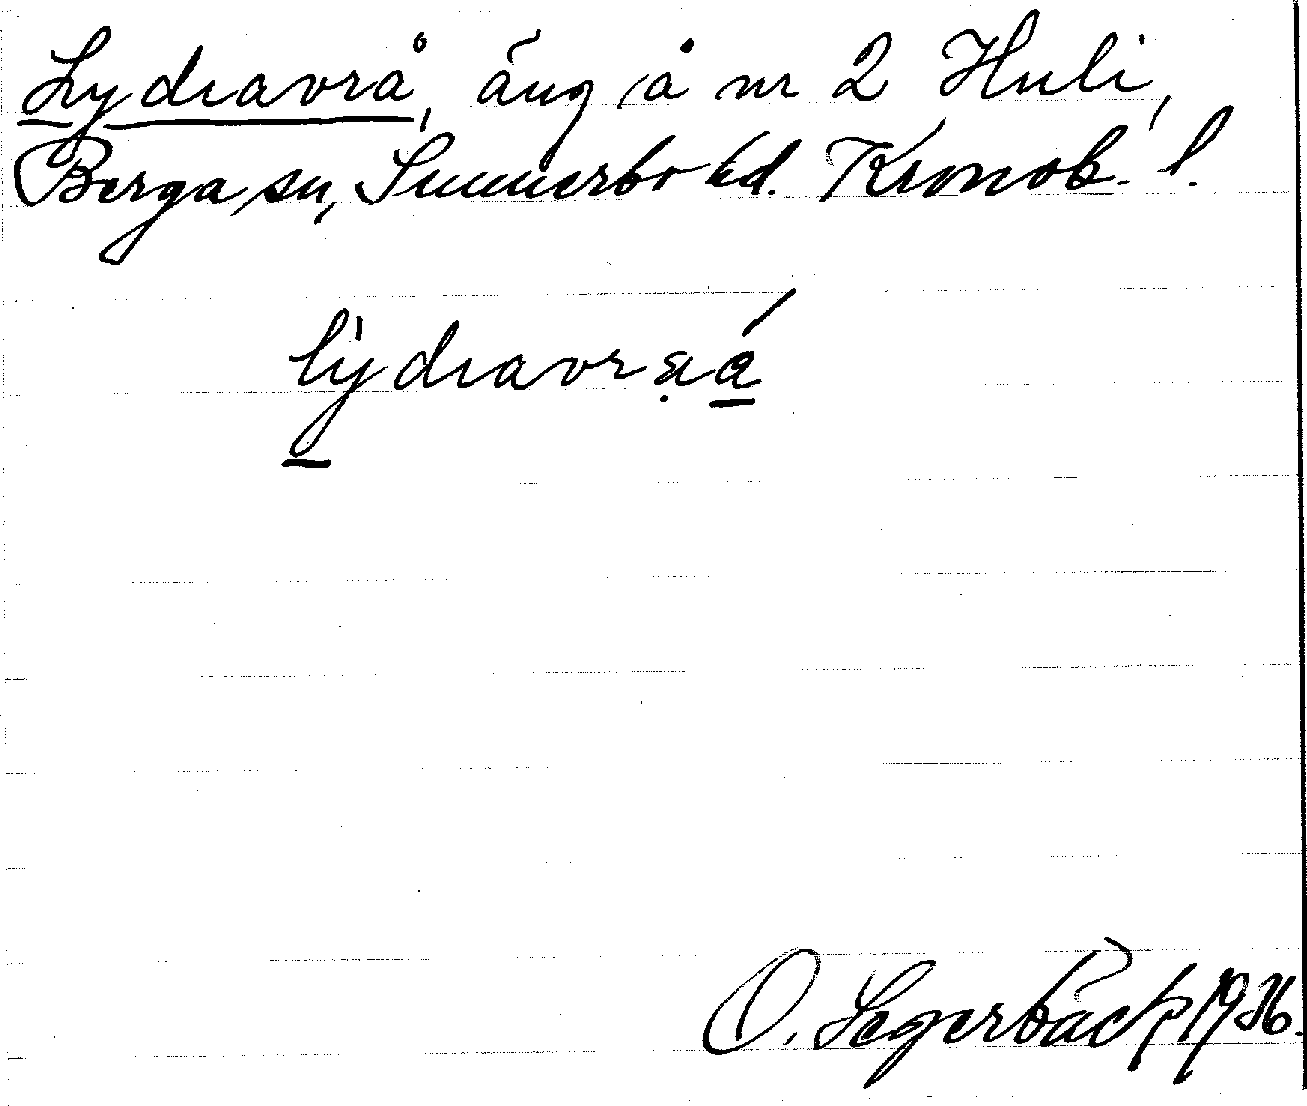 Lydravrå, äng å nr 2 Huli,
Berga sn, Sunnerbo hd. Kronob. l.
O. Segerbäck 1936.